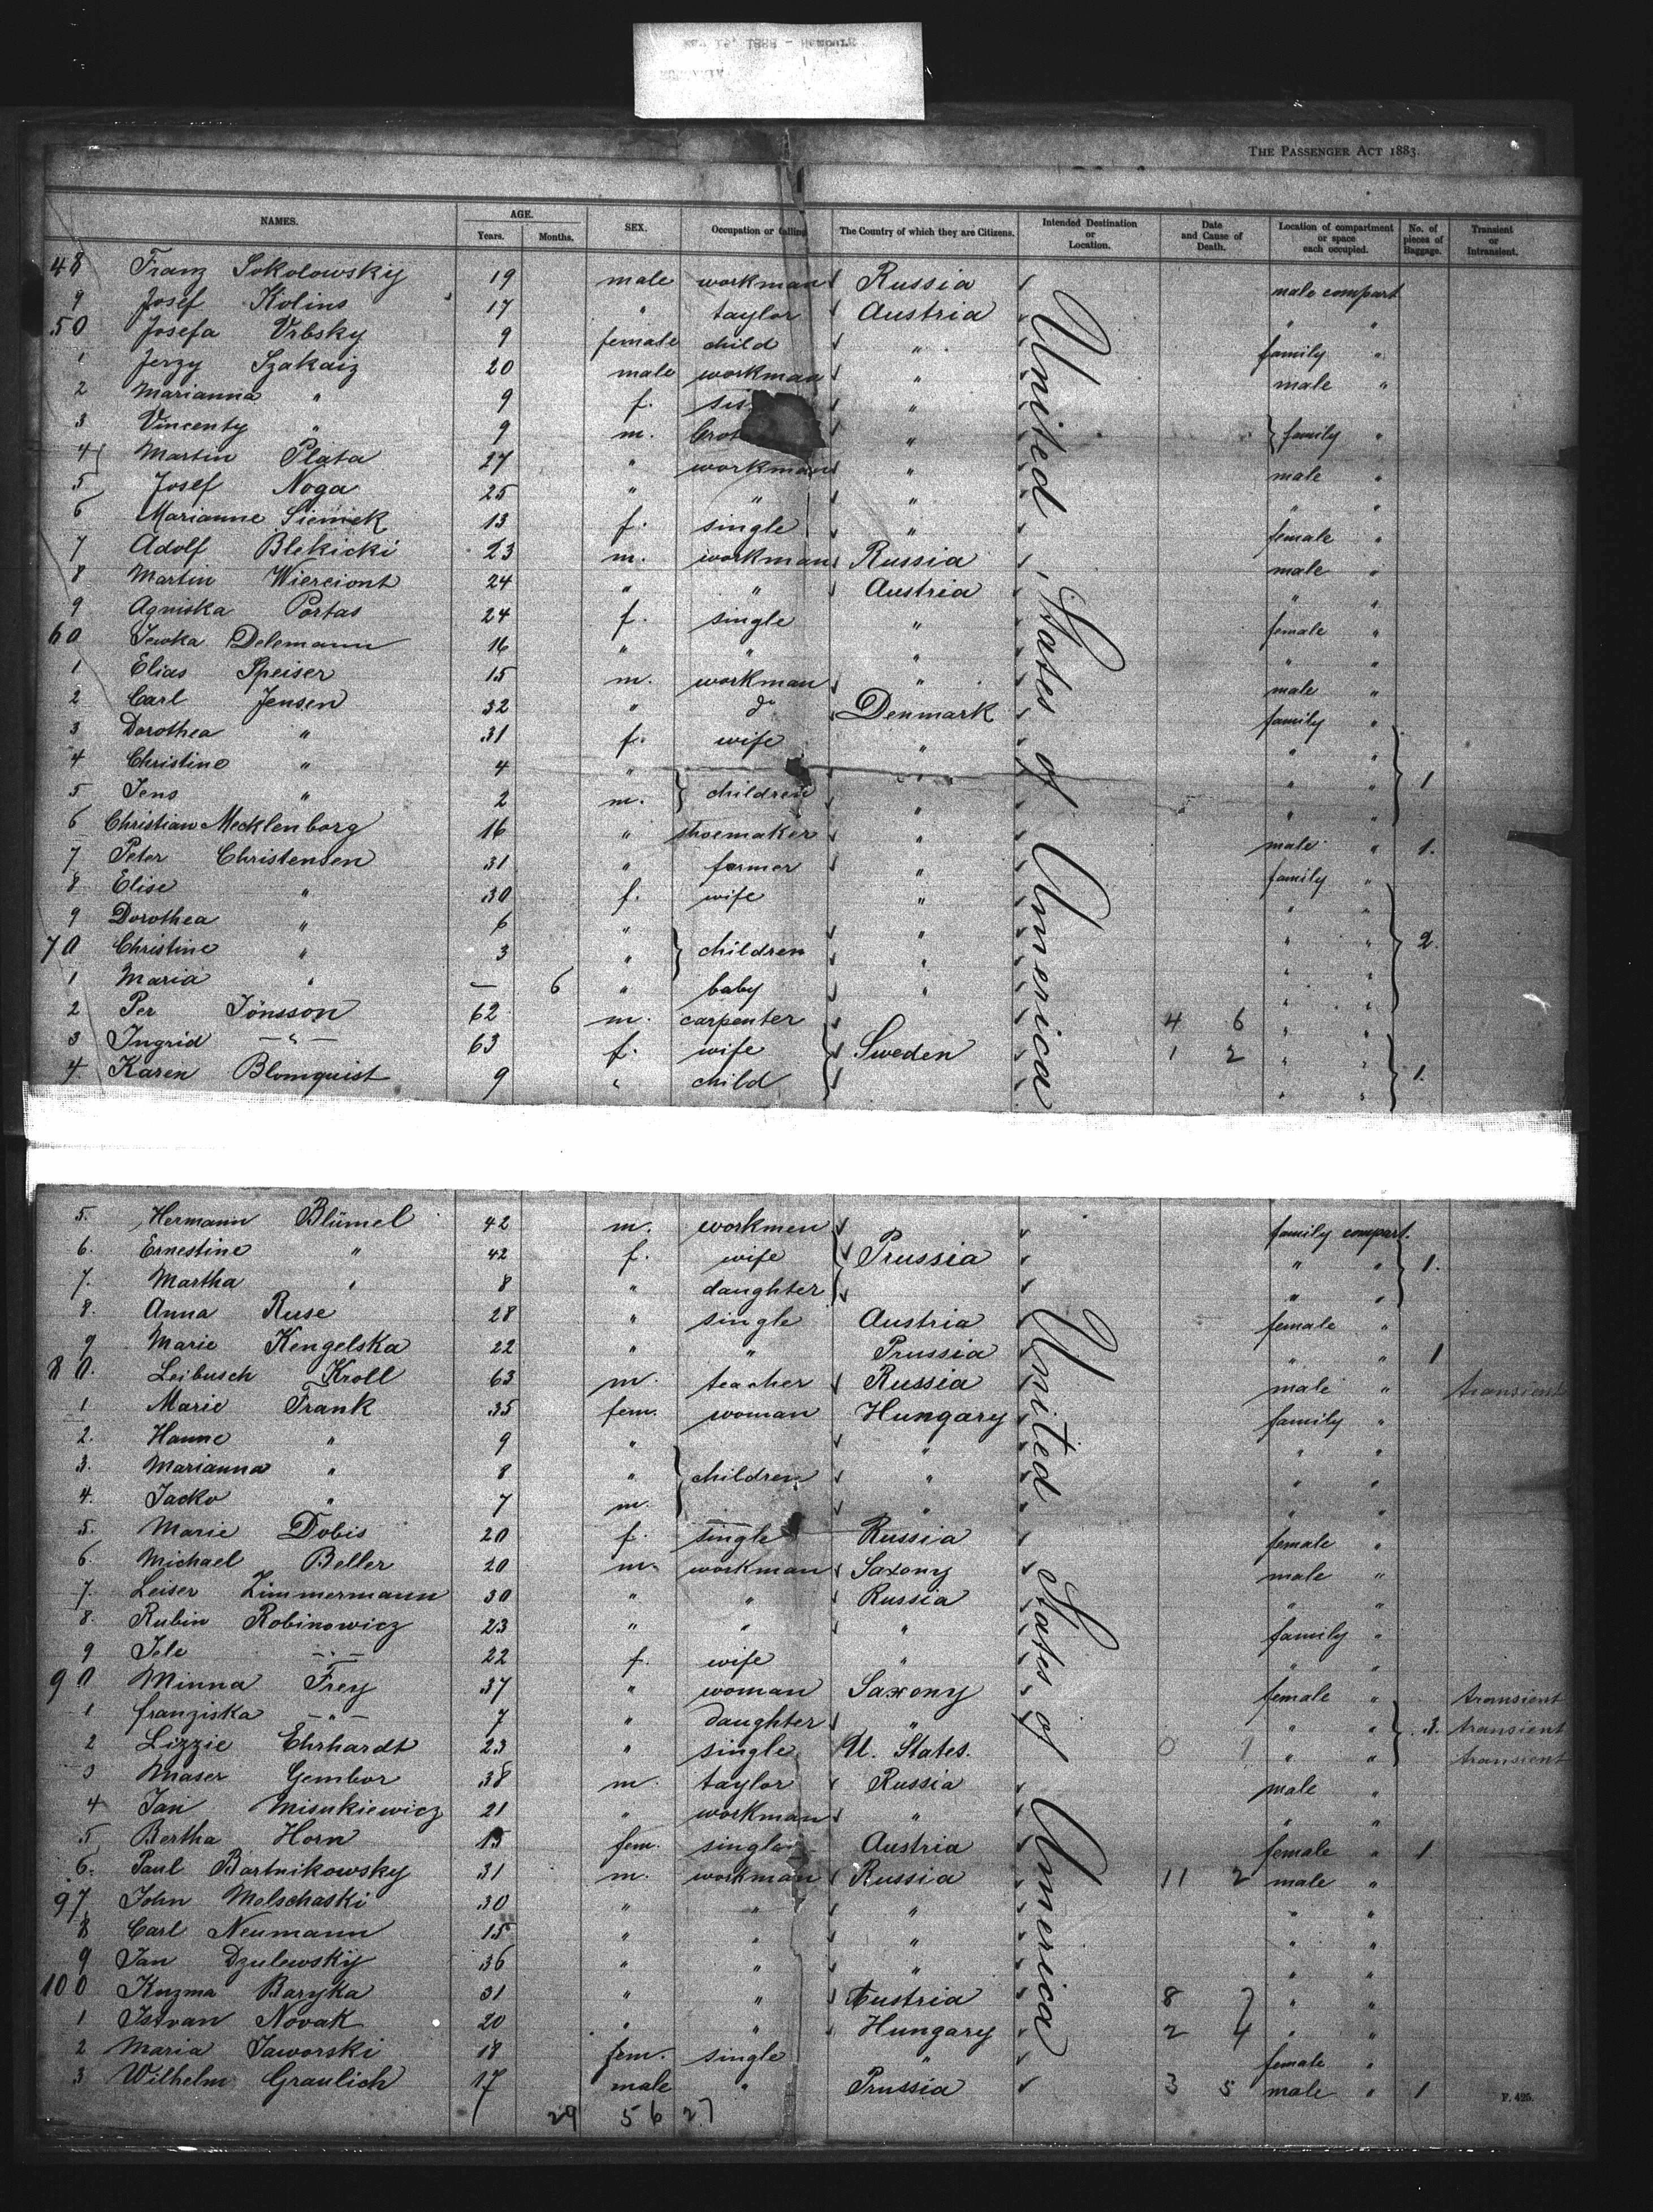 THE PASSENGER ACT 1883.
NAMES. AGE. Years. Months. SEX. Occupation or Calling The Country of which they are Citizens. Intended Destination or Location. Date and Cause of Death. Location of compartment or space each occupied. No. of pieces of Baggage. Transient or Intransient.
48 Franz Sokolowskij 19 male workman Russia male compart
9 Josef Kolins 17 " taylor Austria " "
50 Josefa Vrbsky 9 female child " family "
1 Jerzy Szakaiz 20 male workman " male "
2 Marianna " 9 f. sis "
3 Vincenty " 9 m. brot " family "
4 Martin Plata 27 " workman " male "
5 Josef Noga 25 " " " " "
6 Marianne Siemek 13 f. single " female "
7 Adolf Blekicki 23 m. workman Russia male "
8 Martin Wierciont 24 " " Austria " "
9 Agniska Portas 24 f. single " female "
60 Delemann 16 " " " " "
1 Elias Speiser 15 m. workman " male "
2 Carl Jensen 32 " do Denmark family "
3 Dorothea " 31 f. wife " " "
4 Christine " 4 " children " " " 1
5 Jens " 2 m. " " "
6 Christian Mecklenborg 16 " shoemaker " male " 1.
7 Peter Christensen 31 " farmer " family "
8 Elise " 30 f. wife " " "
9 Dorothea " 6 " children " " " 2.
70 Christine " 3 " " " "
1 Maria " — 6 " baby " " "
2 Per Jönsson 62 m. carpenter 4 6 " "
3 Ingrid —"— 63 f. wife Sweden 1 2 " "
4 Karen Blomquist 9 " child " " 1.
United States of America
5. Hermann Blümel 42 m. workmen family compart.
6. Ernestine " 42 f. wife Prussia " " 1.
7. Martha " 8 " daughter " "
8. Anna Ruse 28 " single Austria female "
9 Marie Kengelska 22 " " Prussia " " 1
80. Leibusch Kroll 63 m. teacher Russia male " transient
1 Marie Frank 35 fem. woman Hungary family "
2. Hanne " 9 " " " "
3. Marianna " 8 " children " " "
4. Jacko " 7 m. " " "
5. Marie Dobis 20 f. single Russia female "
6. Michael Beller 20 m. workman Saxony male "
7. Leiser Zimmermann 30 " " Russia " "
8. Rubin Robinowicz 23 " " " family "
9 —"— 22 f. wife " " "
90 Minna Frey 37 " woman Saxony female " transient
1 Franziska —"— 7 " daughter " " " 3. transient
2 Lizzie Ehrhardt 23 " single U. States. 0 1 " " transient
3 Maser Gembor 38 m. taylor Russia male "
4 Jan Misukiewicz 21 " workman " " "
5 Bertha Horn 15 fem. single Austria female " 1
6. Paul Bartnikowsky 31 m. workman Russia 11 2 male "
97. John Molschaski 30 " " " " "
8 Carl Neumann 15 " " " " "
9 Jan Dzulewskij 36 " " " " "
100 Kuzma Baryka 31 " " Austria 8 7 " "
1 Istvan Novak 20 " " Hungary 2 4 " "
2 Maria Jaworski 18 fem. single " female "
3 Wilhelm Graulich 17 male " Prussia 3 5 male " 1
United States of America
29 56 27
F. 425.